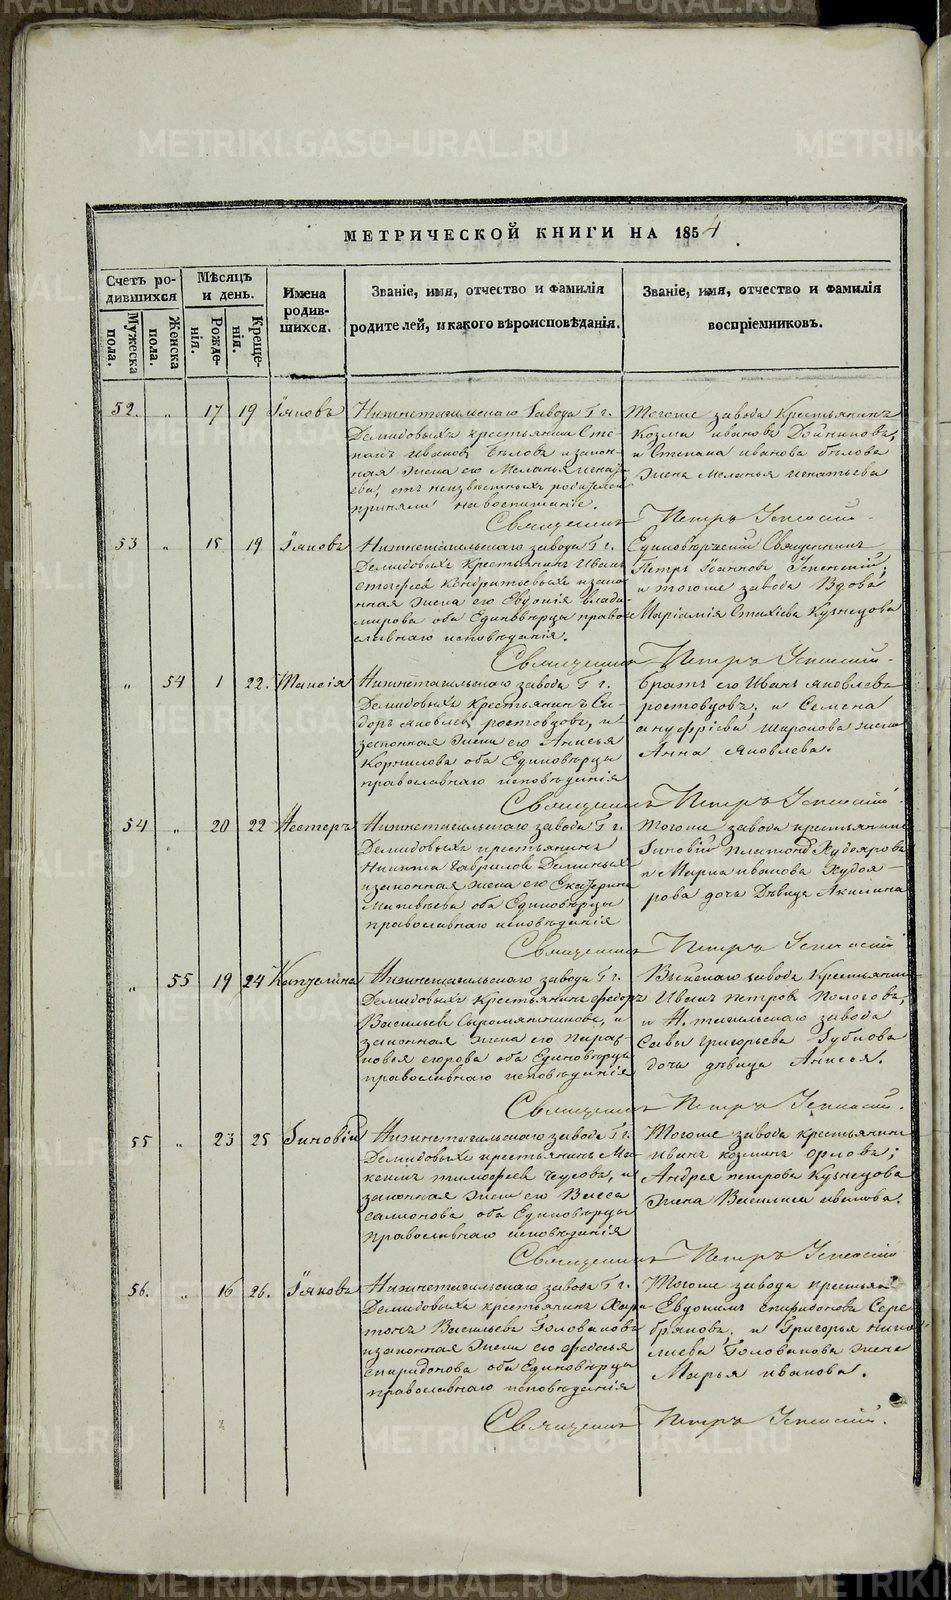 МЕТРИЧЕСКОЙ КНИГИ НА 1854
Счетъ ро-
дившихся
Мѣсяцъ
и день.
Имена
родив-
шихся.
Званіе, имя, отчество и фамилія
родителей, и какого вѣроисповѣданія.
Званіе, имя, отчество и фамилія
воспріемниковъ.
Мужеска
пола.
Женска
пола.
Рожде-
нія.
Креще-
нія.
52. „ 17 19 Іяковъ
Нижнетагильскаго Завода Гг.
Демидовыхъ крестьянинъ Сте-
панъ Ивановъ Бѣловъ и закон-
ная жена его Меланья Игнать-
ева, отъ неизвѣстныхъ родителей
приняли на воспитаніе.
Тогоже завода Крестьянинъ
Козма Ивановъ
и Степана Иванова Бѣлова
жена Меланья Игнатьева
Священникъ Петръ Успенскій.
53 „ 15 19 Іяковъ
Нижнетагильскаго завода Гг.
Демидовыхъ Крестьянинъ Иванъ
Кондратьевыхъ и закон-
ная жена его Евдокія Влади-
мирова оба Единовѣрцы право-
славнаго исповѣданія.
Единовѣрческій Священникъ
Петръ Іоанновъ Успенскій;
и тогоже завода Вдова
Маріамія Стахіева Кузнецова
Священникъ Петръ Успенскій.
„ 54 1 22. Таисія
Нижнетагильскаго завода Гг.
Демидовыхъ Крестьянинъ Си-
доръ Яковлевъ Ростовцовъ, и
законная жена его Анисья
Корнилова оба Единовѣрцы
православнаго исповѣданія
братъ его Иванъ Яковлевъ
Ростовцовъ, и Семена
Ануфріева Широкова жена
Анна Яковлева.
Священникъ Петръ Успенскій.
54 „ 20 22 Нестеръ
Нижнетагильскаго завода Гг.
Демидовыхъ крестьянинъ
Никита Гавриловъ Деминыхъ
и законная жена его Екатерина
Матвѣева оба Единовѣрцы
православнаго исповѣданія
Тогоже завода крестьянинъ
Зиновій Платоновъ Худояровъ
и Марка Иванова Худоя-
рова дочь Дѣвица Акилина
Священникъ Петръ Успенскій
„ 55 19 24 Капитолина
Нижнетагильскаго завода Гг.
Демидовыхъ Крестьянинъ Федоръ
Васильевъ Сыромятниковъ, и
законная жена его Парас-
ковья Егорова оба Единовѣрцы
православнаго исповѣданія
Выйскаго завода Крестьянинъ
Иванъ Петровъ Пологовъ,
и Н. тагильскаго завода
Савы Григорьева Губкова
дочь дѣвица Анисья.
Священникъ Петръ Успенскій.
55 „ 23 25 Зиновій
Нижнетагильскаго завода Гг.
Демидовыхъ крестьянинъ Ма-
ксимъ Тимофеевъ Чусовъ, и
законная жена его Васса
Самсонова оба Единовѣрцы
православнаго исповѣданія
Тогоже завода крестьянинъ
Иванъ Козминъ Орловъ;
Андрея Петрова Кузнецова
жена Василиса Иванова.
Священникъ Петръ Успенскій
56. „ 16 26. Іяковъ
Нижнетагильскаго завода Гг.
Демидовыхъ крестьянинъ Хари-
тонъ Васильевъ Головановъ
и законная жена его Федосья
Спиридонова оба Единовѣрцы
православнаго исповѣданія
Тогоже завода крестья-
Евдокимъ Спиридоновъ Сере-
бряковъ, и Григорья Нико-
лаева Голованова жена
Марья Иванова.
Священникъ Петръ Успенскій.
METRIKI.GASO-URAL.RU